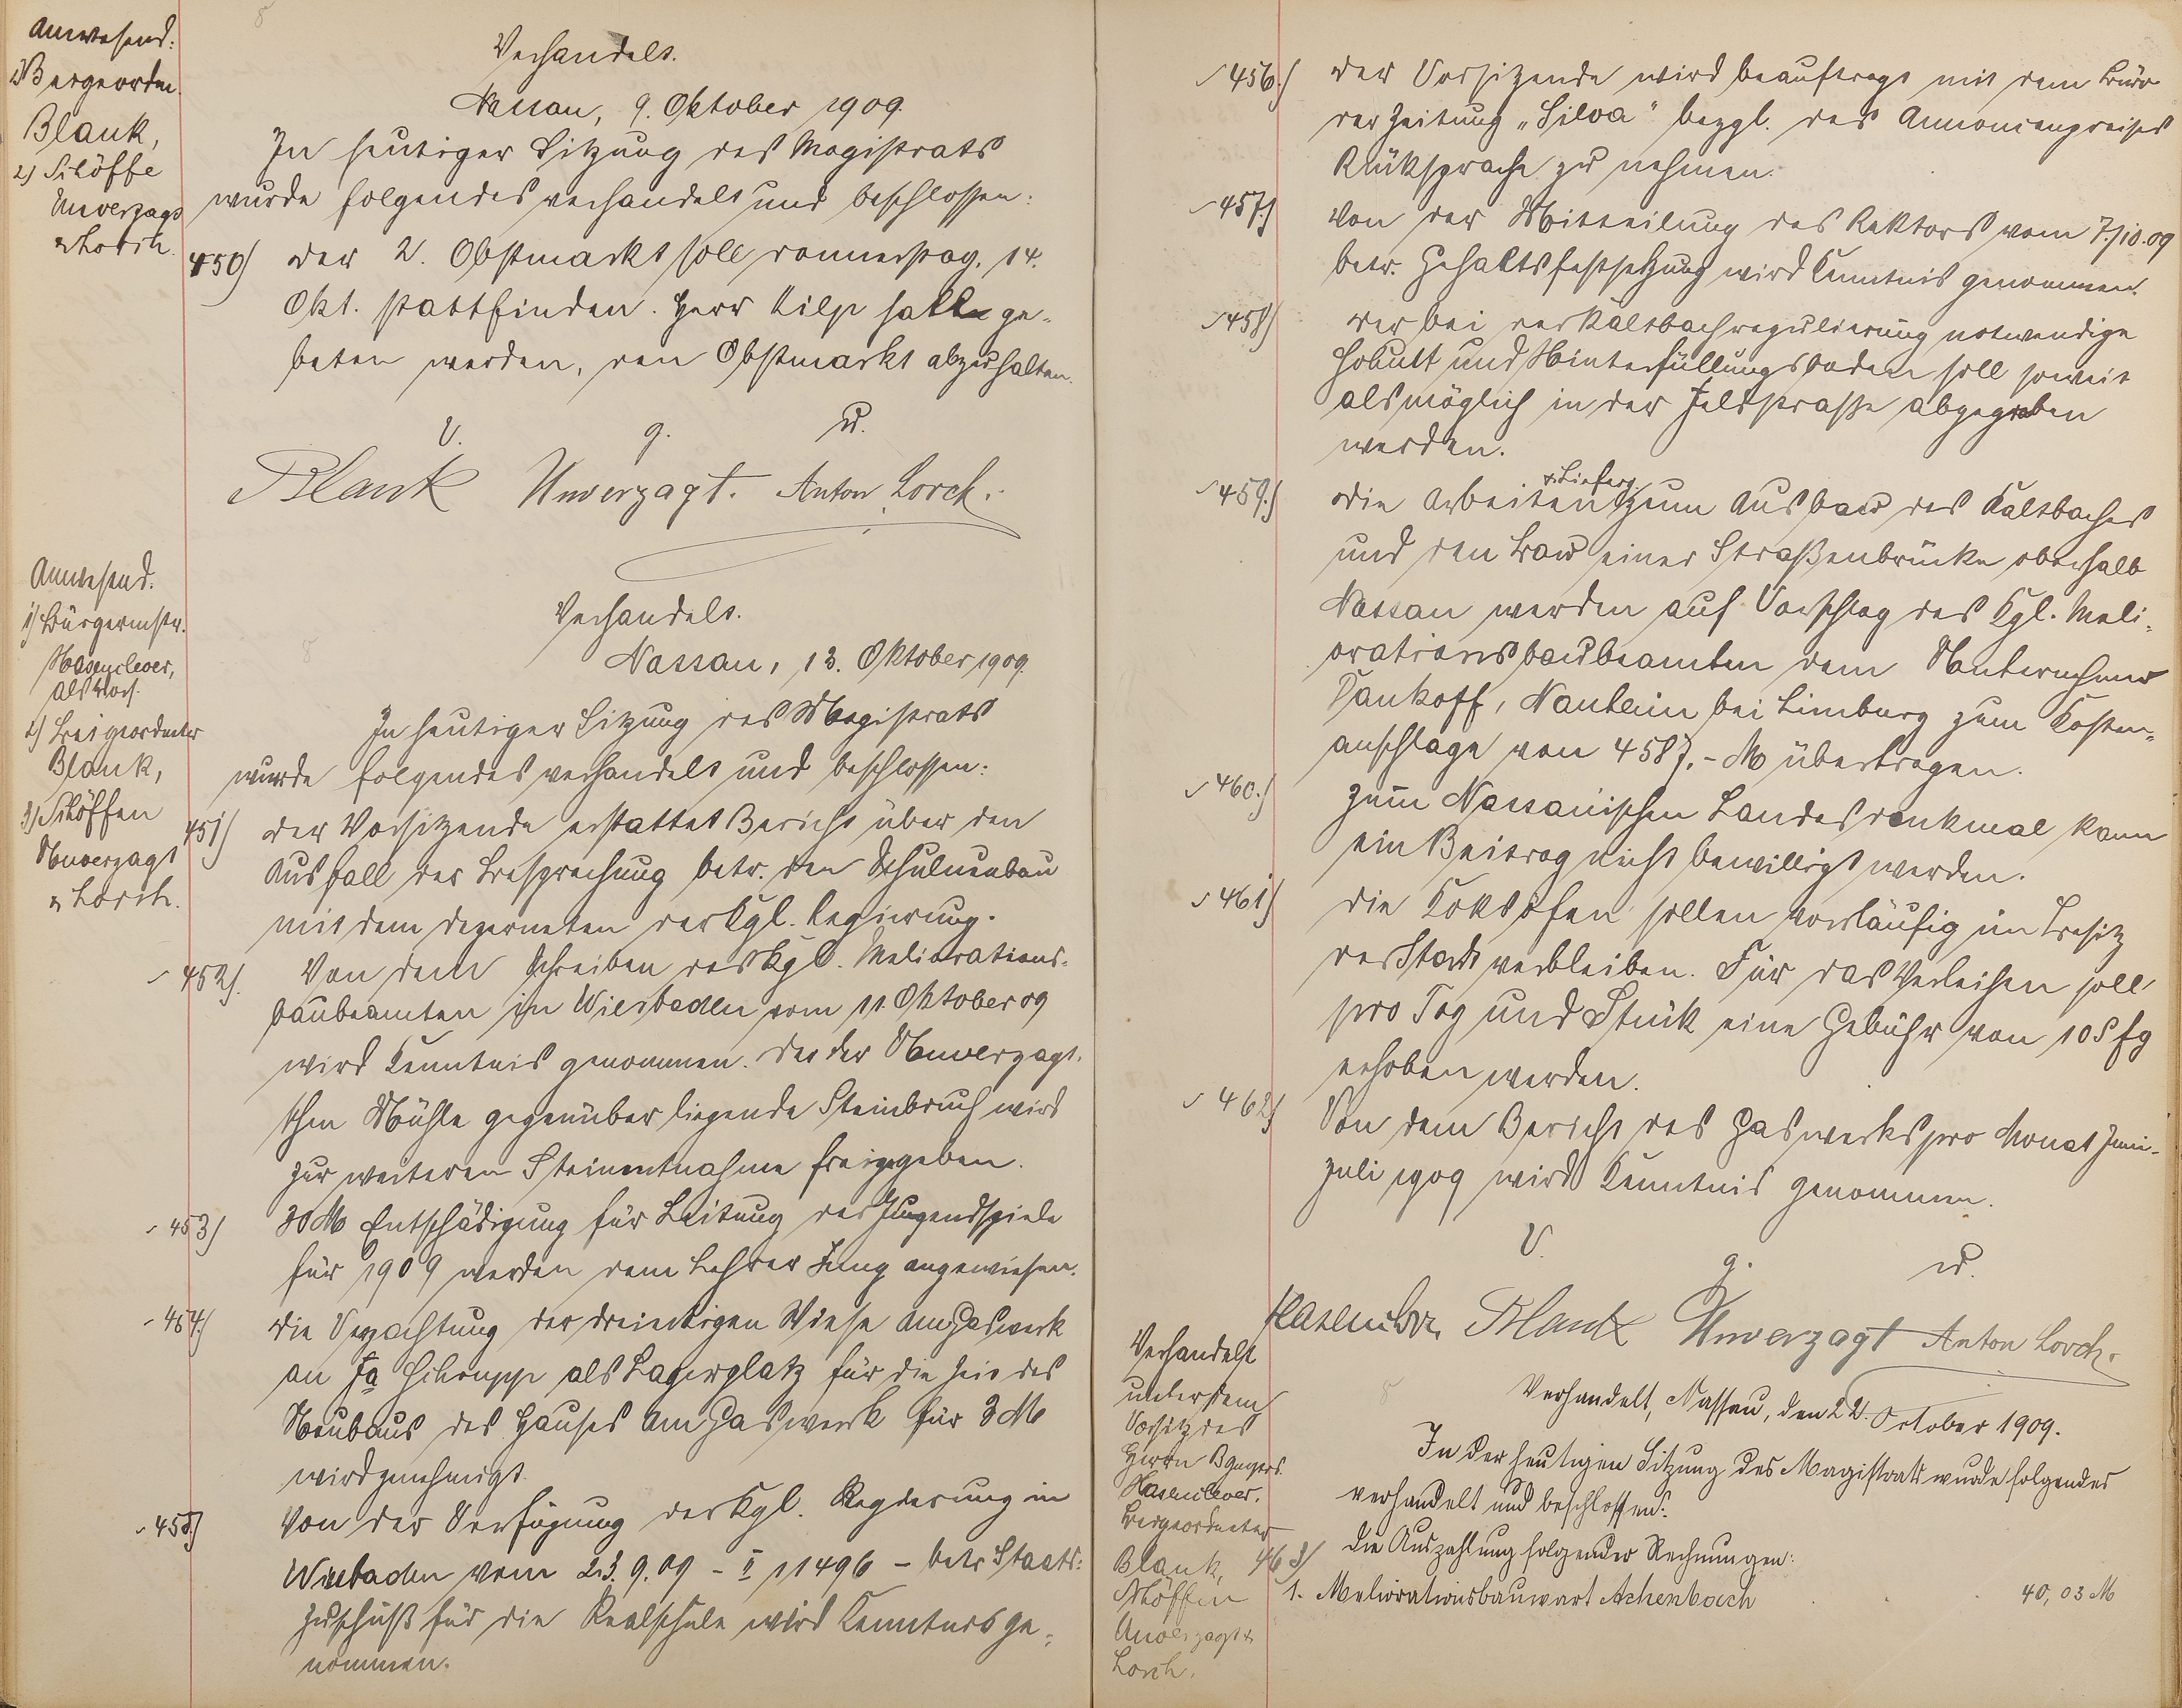 Anwesend:
1) Beigeordn.
Blank,
2) Schöffe
Unverzagt
u. Lorch.
Verhandelt.
Nassau, 9. Oktober 1909.
In heutiger Sitzung des Magistrats
wurde folgendes verhandelt und beschlossen:
450) der 2. Obstmarkt soll donnerstag, 14.
Okt. stattfinden. Herr Kilp soll ge-
beten werden, den Obstmarkt abzuhalten.
V. g. u.
Blank Unverzagt. Anton Lorch.
Anwesend:
1) Bürgermstr.
Hasenclever,
als Vors.
2) Beigeordneter
Blank,
3) Schöffen
Unverzagt
u. Lorch.
Verhandelt.
Nassau, 13. Oktober 1909.
In heutiger Sitzung des Magistrats
wurde folgendes verhandelt und beschlossen:
451) der Vorsitzende erstattet Bericht über den
Ausfall der Besprechung betr. den Schulneubau
mit dem dezernenten der Kgl. Regierung.
452) Von dem Schreiben des Kgl. Meliorations-
baubeamten in Wiesbaden vom 11. Oktober 09
wird Kenntnis genommen. Der der Unverzagt-
schen Mühle gegenüber liegende Steinbruch wird
zur weiteren Steinentnahme freigegeben.
453) 30 M Entschädigung für Leitung der Jugendspiele
für 1909 werden dem Lehrer Jung angewiesen.
454) die Verpachtung der dreieckigen Wiese am Gaswerk
an Fa Schrupp als Lagerplatz für die Zeit des
Neubaus des Hauses am Gaswerk für 3 M
wird genehmigt.
455) Von der Verfügung der Kgl. Regierung in
Wiesbaden vom 23.9.09 - II 11496 - betr. Staats-
zuschuß für die Realschule wird Kenntnis ge-
nommen.
456) der Vorsitzende wird beauftragt mit dem Büro
der Zeitung „Silva" bezgl. des Annoncenpreises
Rüksprache zu nehmen.
457) Von der Mitteilung des Rektors vom 7./10.09
betr. Gehaltsfestsetzung wird Kenntnis genommen.
458) der bei der Kaltbachregulierung notwendige
Schutt und Hinterfüllungsboden soll soweit
als möglich in der Feldstraße abgegraben
werden.
459) die Arbeiten u. Liefer. zum Ausbau des Kaltbaches
und den Bau einer Straßenbrücke oberhalb
Nassau werden auf Vorschlag des Kgl. Meli-
orationsbaubeamten dem Unternehmer
Pankoff, Nauheim bei Limburg zum Kosten-
anschlage von 4587.- M übertragen.
460) zum Nassauischen Landesdenkmal kann
ein Beitrag nicht bewilligt werden.
461) die Koksöfen sollen vorläufig im Besitz
der Stadt verbleiben. Für das Verleihen soll
pro Tag und Stück eine Gebühr von 10 Pfg
erhoben werden.
462) Von dem Bericht des Gaswerks pro Monat Juni-
Juli 1909 wird Kenntnis genommen.
V. g. u.
Hasenclever Blank Unverzagt Anton Lorch.
Verhandelt
unter dem
Vorsitz des
Herrn
Hasenclever.
Beigeordneter
Blank,
Schöffen
Unverzagt u.
Lorch.
Verhandelt, Nassau, den 22. October 1909.
In der heutigen Sitzung des Magistrats wurde folgendes
verhandelt und beschlossen:
463) die Auszahlung folgender Rechnungen:
1. Meliorationsbauwart Achenbach 40,03 M